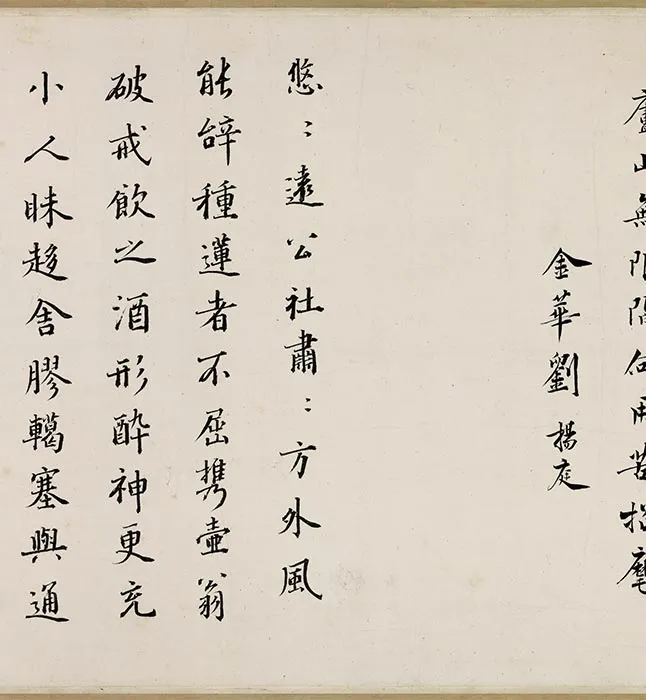 廬山無隔何用苦招麾
金華劉揚庭
悠〻遠公社肅〻方外風
能辤種蓮者不屈携壷翁
破戒飲之酒形醉神更充
小人昧趍舍膠轕塞與通